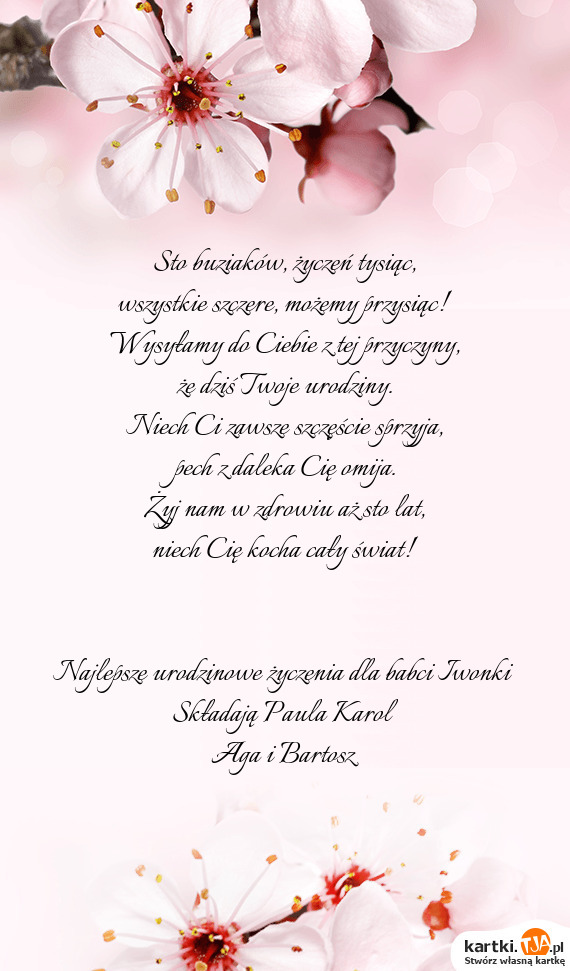 Sto buziaków, życzeń tysiąc,
wszystkie szczere, możemy przysiąc!
Wysyłamy do Ciebie z tej przyczyny,
że dziś Twoje urodziny.
Niech Ci zawsze szczęście sprzyja,
pech z daleka Cię omija.
Żyj nam w zdrowiu aż sto lat,
niech Cię kocha cały świat!
Najlepsze urodzinowe życzenia dla babci Iwonki
Składają Paula Karol
Aga i Bartosz
kartki.TJA.pl
Stwórz własną kartkę